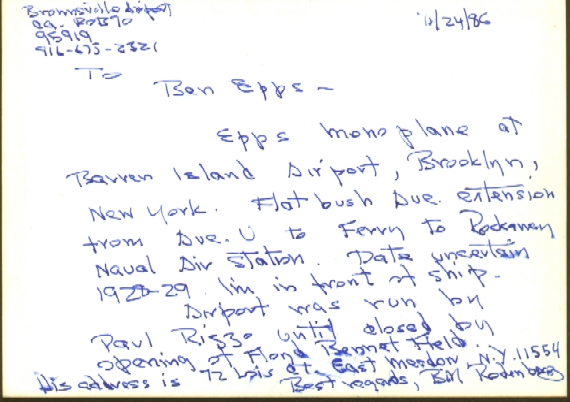 Brownsville Airport
Ca. Box 70
95919
916-675-2321
11/24/86
To
Ben Epps -
Epps monoplane at
Barren Island Airport, Brooklyn,
New York. Flatbush Ave. extension
from Ave. U to Ferry to Rockaway
Naval Air Station. Date uncertain
1929-29 I'm in front of ship.
Airport was run by
Paul Rizzo until closed by
opening of Floyd Bennet Field.
His address is 72 Lois Ct. East Meadow, N.Y. 11554
Best regards, Bill